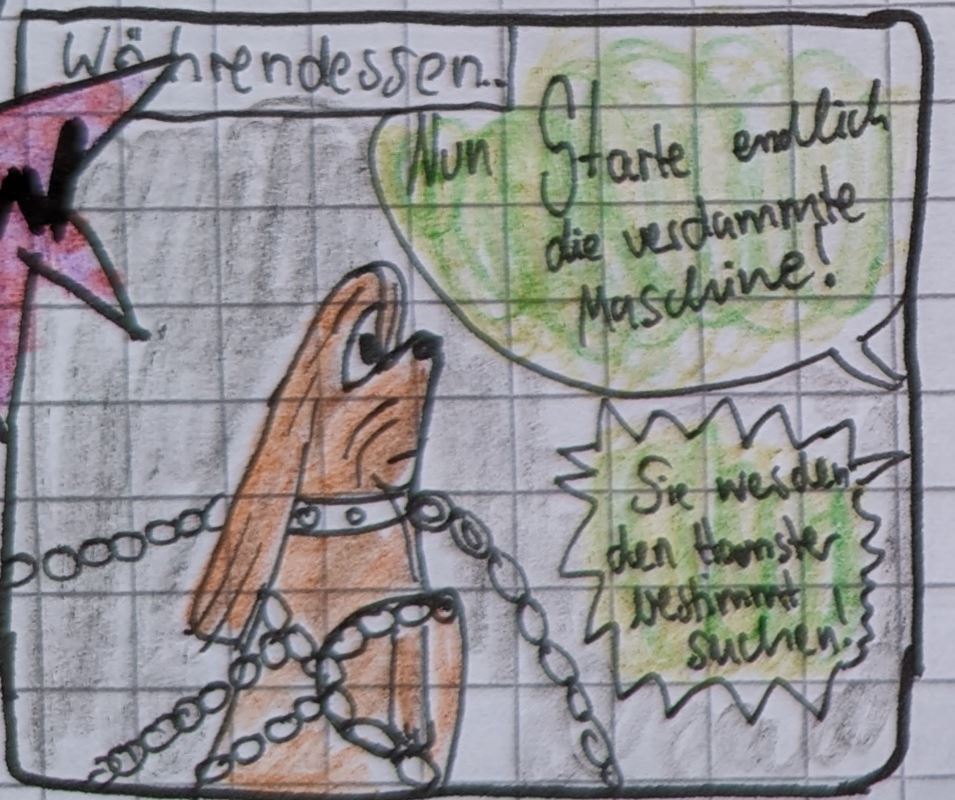 Währendessen..
Nun Starte endlich
die verdammte
Maschine!
Sie werden
den Hamster
bestimmt
suchen!